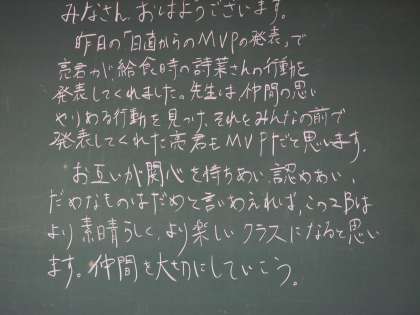 みなさん、おはようございます。
昨日の「日直からのMVPの発表」で
亮君が給食時の詩葉さんの行動を
発表してくれました。先生は、仲間の思い
やりある行動を見つけ、それをみんなの前で
発表してくれた亮君もMVPだと思います。
お互いが関心を持ちあい、認めあい、
だめなものはだめと言いあえれば、この2Bは
より素晴らしく、より楽しいクラスになると思い
ます。仲間を大切にしていこう。